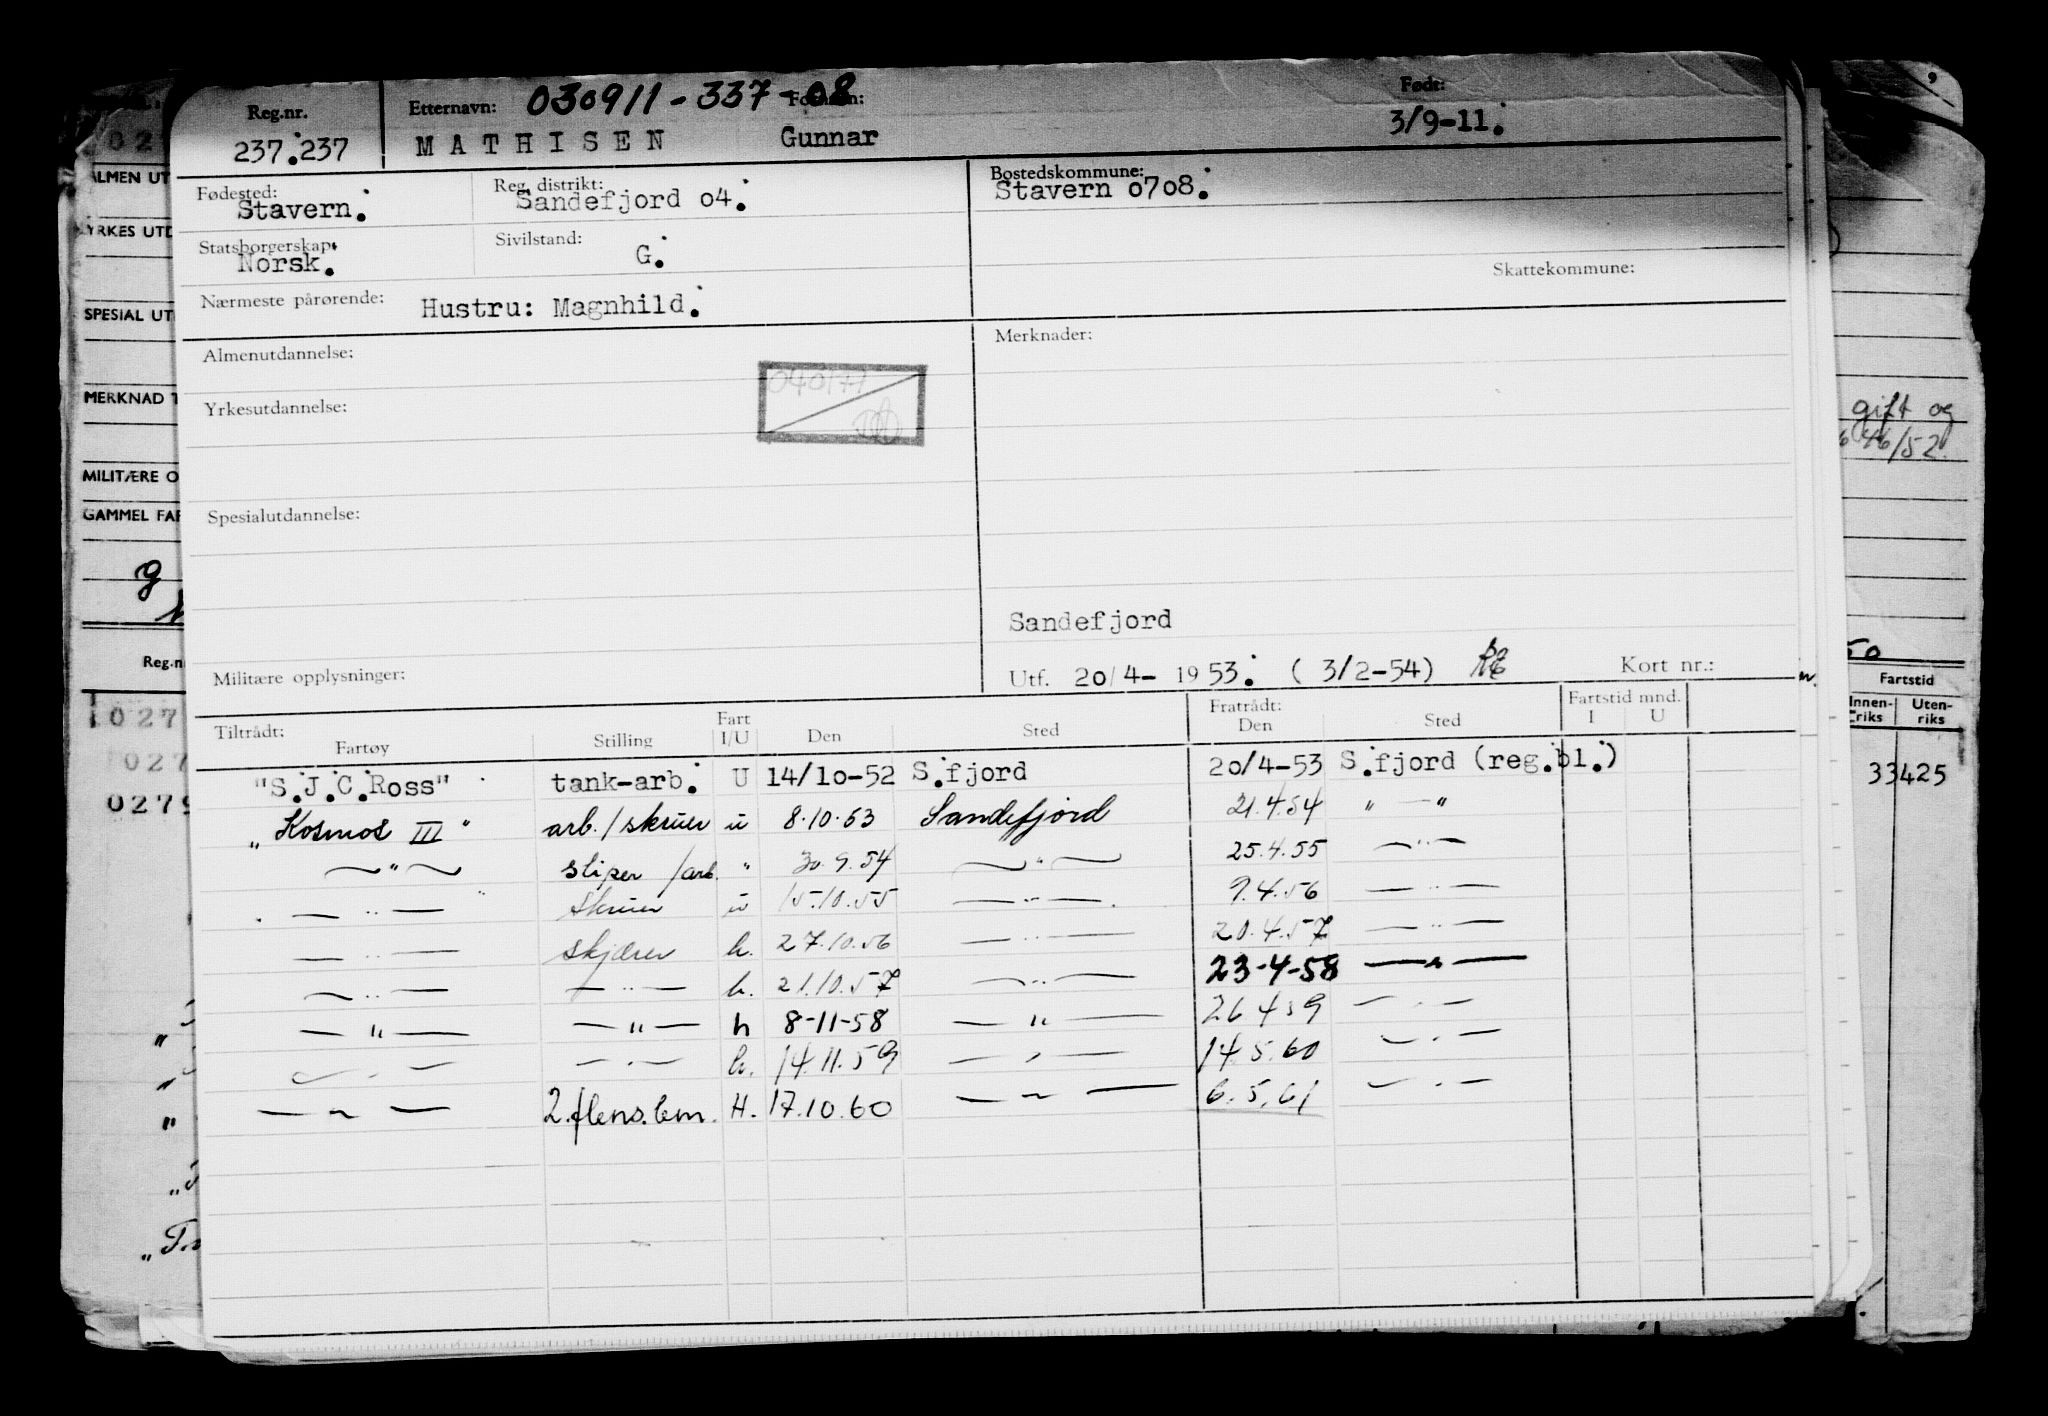 Reg.nr. Etternavn: 030911-337-08 Født:
237.237 MATHISEN Gunnar 3/9-11.
Fødested: Stavern. Reg. distrikt: Sandefjord 04. Bostedskommune: Stavern 0708.
Statsborgerskap: Norsk. Sivilstand: G.
Skattekommune:
Nærmeste pårørende: Hustru: Magnhild.
Almenutdannelse: Merknader:
040177
Yrkesutdannelse:
Spesialutdannelse:
Sandefjord
Militære opplysninger: Utf. 20/4- 1953. (3/2-54) Kort nr.:
Tiltrådt: Fart Fratrådt: Fartstid mnd.
Fartøy Stilling I/U Den Sted Den Sted I U
"S.J.C.Ross" tank-arb. U 14/10-52 S.fjord 20/4-53 S.fjord (reg.bl.)
„Kosmos III" arb./skruer u 8.10.53 Sandefjord 21.4.54 " — "
— " — sliper /arb. " 30.9.54 — " — 25.4.55 — " —
— " — skruer u 15.10.55 — " — 9.4.56 — " —
— " — skjærer h. 27.10.56 — " — 20.4.57 — " —
— " — — " — h. 21.10.57 — " — 23-4-58 — " —
— " — — " — h 8-11-58 — " — 26 4 59 — " —
— " — — " — h. 14.11.59 — " — 14.5.60 — " —
— " — 2.flens.lem. H. 17.10.60 — " — 6.5.61 — " —
ALMEN UT
YRKES UTD
SPESIAL UT
MERKNAD T
MILITÆRE O
GAMMEL FAR
g
Reg.n
027
027
0279
gift og
46/52
50
Fartstid
Innen-riks Uten-riks
33425